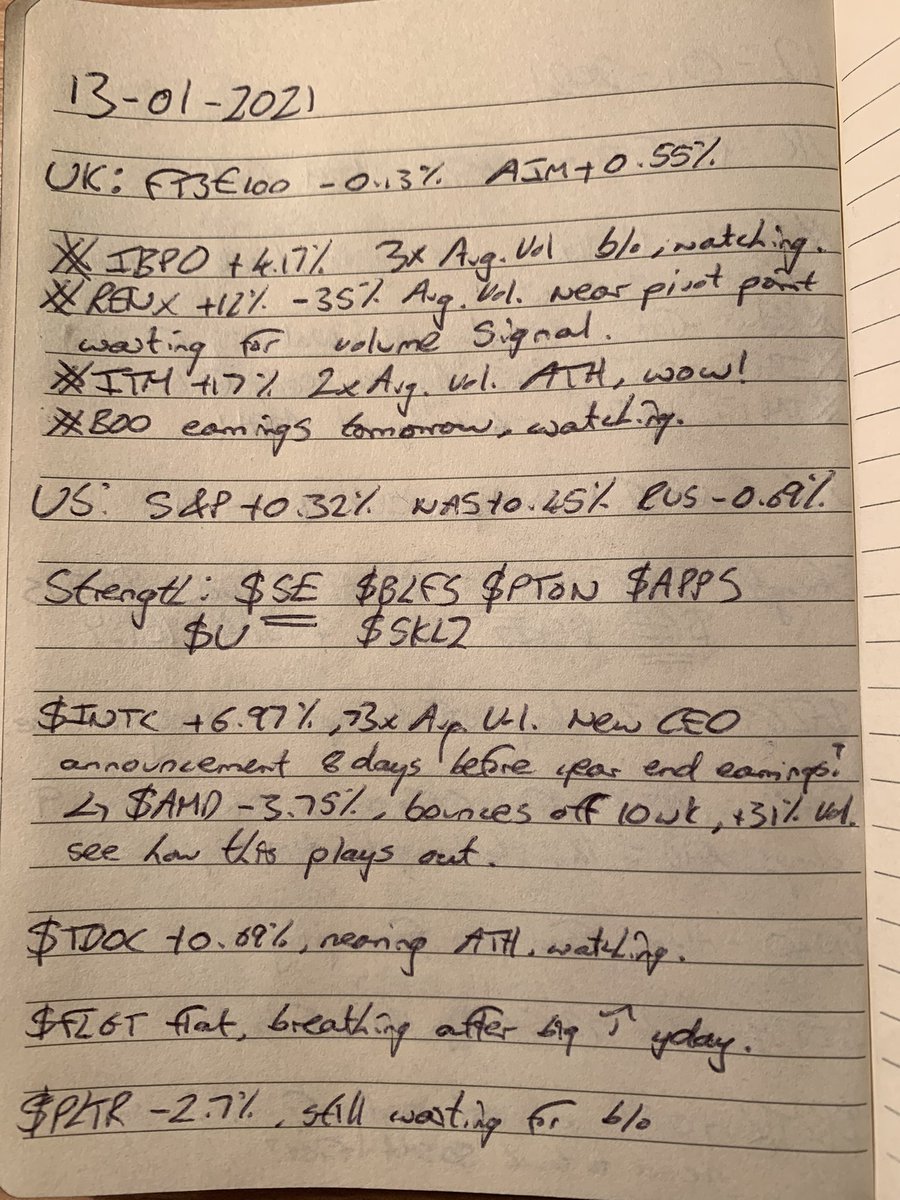 13-01-2021
UK: FTSE100 -0.13% AIM +0.55%
※ IBPO +4.17% 3x Avg. Vol b/o, watching.
※ RENX +12% -35% Avg. Vol. Near pivot point
waiting for volume signal.
※ ITM +17% 2x Avg. Vol. ATH, wow!
※ BOO earnings tomorrow, watching.
US: S&P +0.32% NAS +0.45% RUS -0.69%
Strength: $SE $BLFS $PTON $APPS
$U $SKLZ
$INTC +6.97%, >3x Avg. Vol. New CEO
announcement 8 days before year end earnings?
↳ $AMD -3.75%, bounces off 10wk, +31% Vol.
see how this plays out.
$TDOC +0.69%, nearing ATH. watching.
$FLGT flat, breathing after big ↑ yday.
$PLTR -2.7%, still waiting for b/o